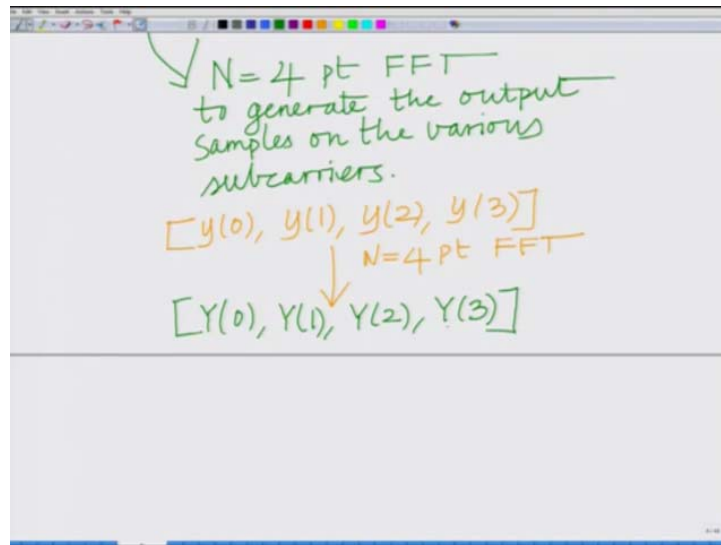 N = 4 pt FFT
to generate the output
samples on the various
subcarriers.
[y(0), y(1), y(2), y(3)]
N=4 pt FFT
[Y(0), Y(1), Y(2), Y(3)]